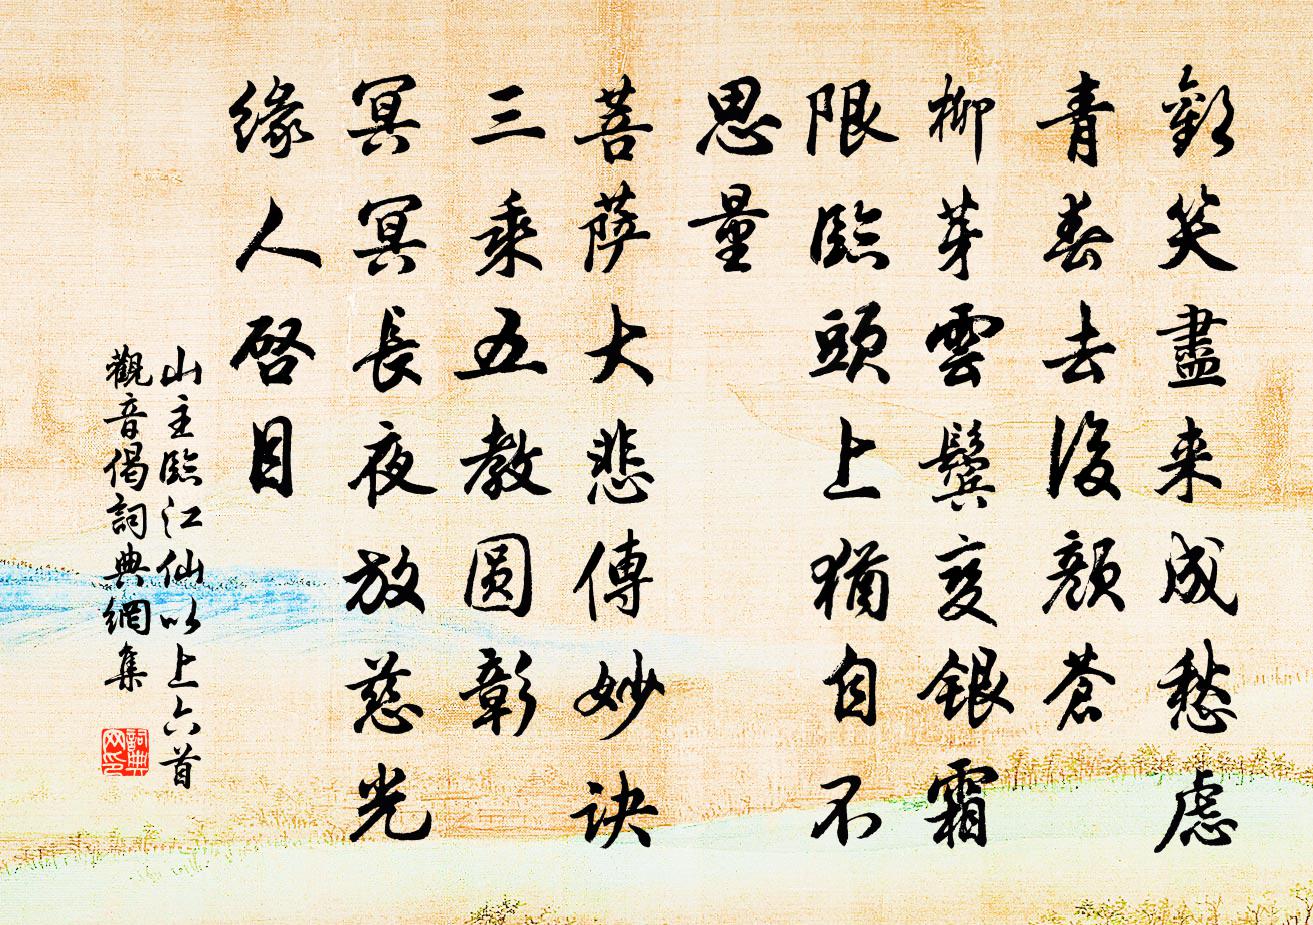 歡笑盡来成愁慮
青春去後顔蒼
柳芽雲鬓变銀霜
限臨頭上猶自不
思量
菩萨大悲傳妙诀
三乘五教圆彰
冥冥長夜放慈光
缘人啓目
山主臨江仙以上六首
觀音偈詞典網集
詞典网印